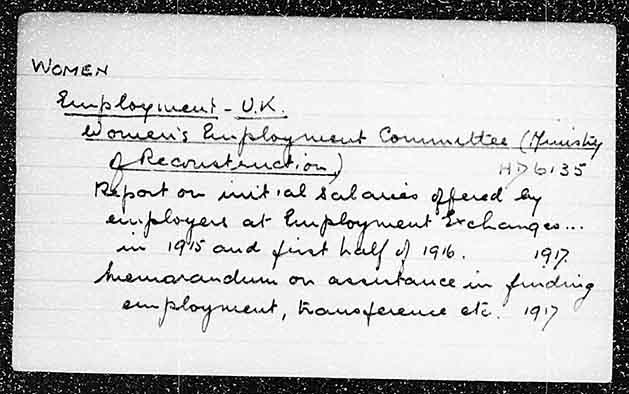 WOMEN
Employment - U.K.
Women's Employment Committee (Ministry
of Reconstruction) HD 6135
Report on initial salaries offered by
employers at Employment Exchanges...
in 1915 and first half of 1916. 1917.
Memorandum on assistance in finding
employment, transference etc. 1917